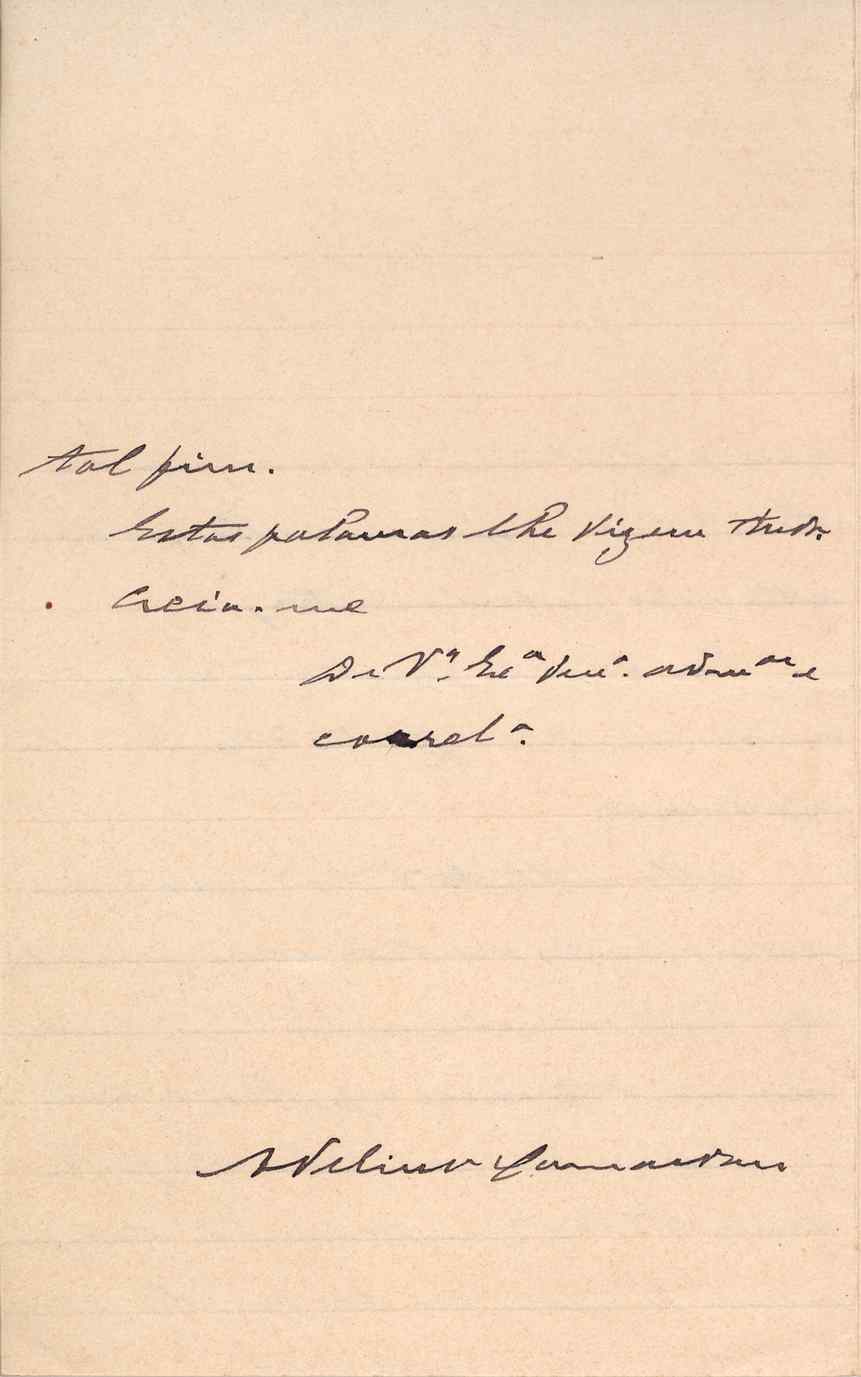 tal fim.
Estas palavras lhe dizem tudo.
Creia-me
De V.ª Ex.ª admor e
correlº.
Adelino